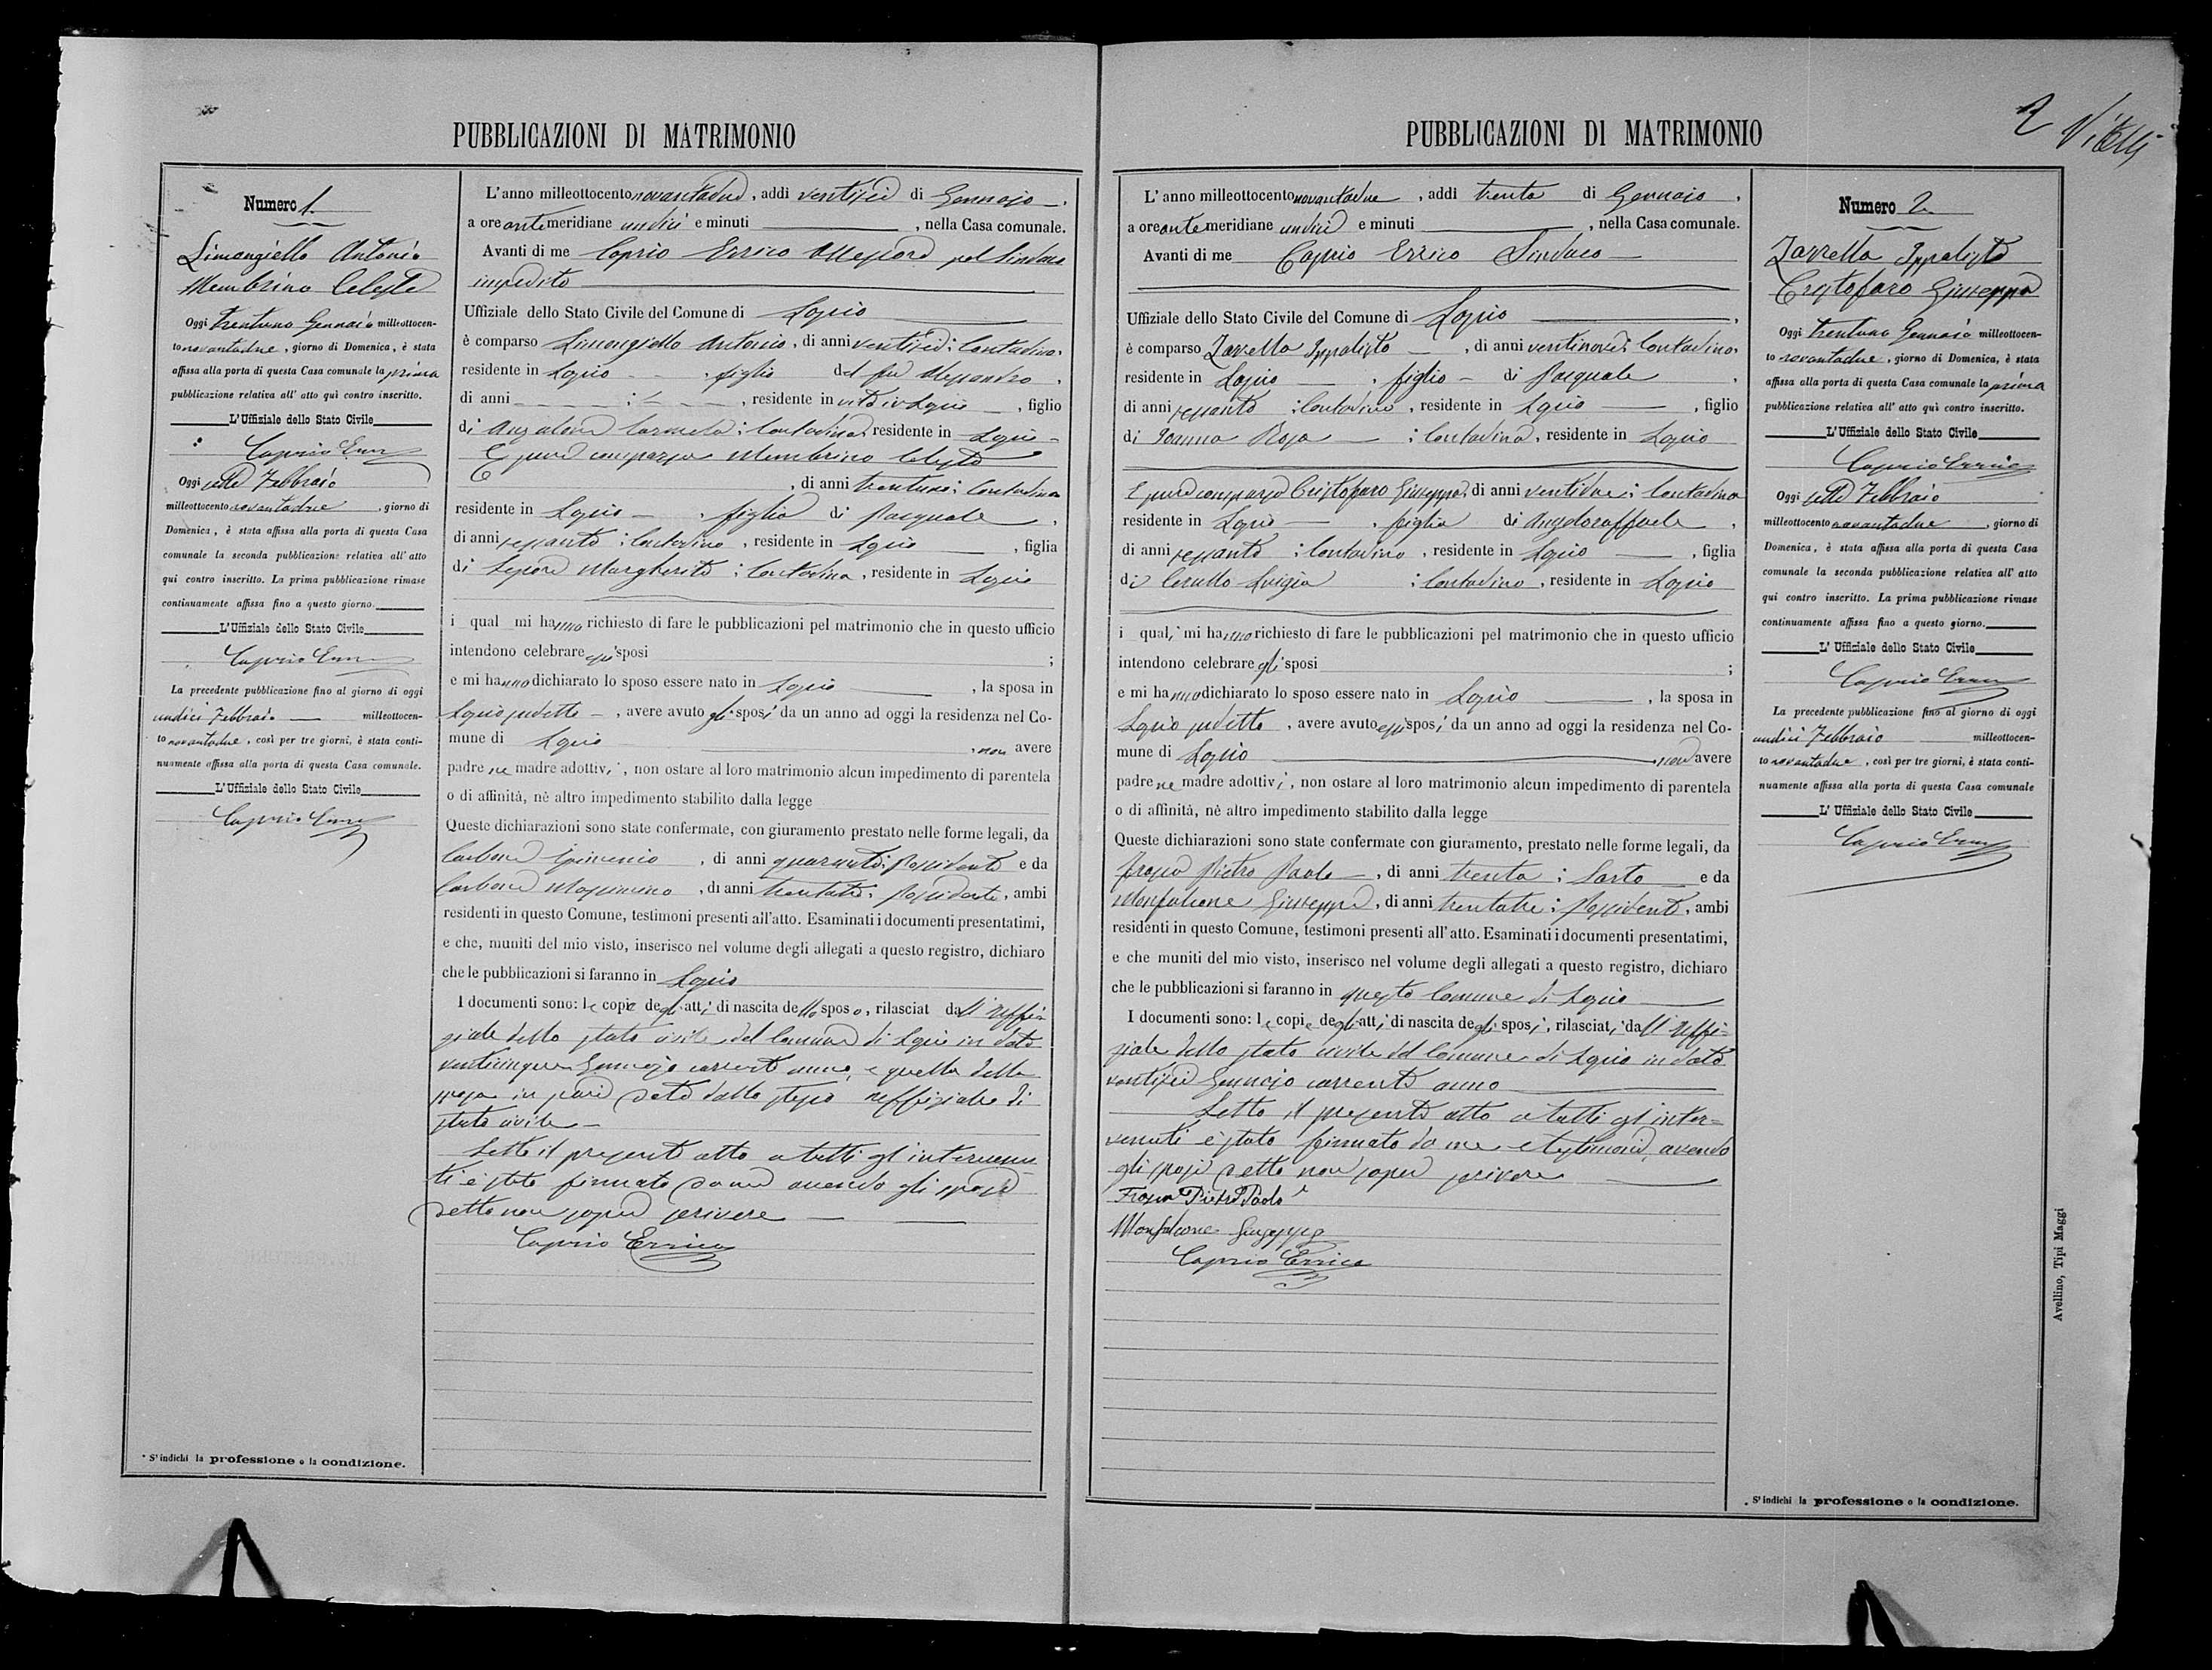 PUBBLICAZIONI DI MATRIMONIO
Numero 1
Limongiello Antonio
Membrino Celeste
Oggi trentuno Gennaio milleottocen-
to novantadue, giorno di Domenica, è stata
affissa alla porta di questa Casa comunale la prima
pubblicazione relativa all' atto quì contro inscritto.
L'Uffiziale dello Stato Civile
Caprio Errico
Oggi sette Febbraio
milleottocento novantadue, giorno di
Domenica, è stata affissa alla porta di questa Casa
comunale la seconda pubblicazione relativa all' atto
qui contro inscritto. La prima pubblicazione rimase
continuamente affissa fino a questo giorno.
L'Uffiziale dello Stato Civile
Caprio Errico
La precedente pubblicazione fino al giorno di oggi
undici Febbraio milleottocen-
to novantadue, così per tre giorni, è stata conti-
nuamente affissa alla porta di questa Casa comunale.
L'Uffiziale dello Stato Civile
Caprio Errico
* S'indichi la professione o la condizione.
L'anno milleottocento novantadue, addì ventisei di Gennajo,
a ore antemeridiane undici e minuti , nella Casa comunale.
Avanti di me Caprio Errico Assessore pel Sindaco
impedito
Uffiziale dello Stato Civile del Comune di Lapio
è comparso Limongiello Antonio, di anni ventisei; Contadino,
residente in Lapio, figlio del fu Alessandro,
di anni , residente in vita in Lapio, figlio
di Carmela; Contadina, residente in Lapio
E pure comparsa Membrino Celeste
, di anni trentuno; Contadina
residente in Lapio, figlia di Pasquale,
di anni sessanta; Contadino, residente in Lapio, figlia
di Margherita; Contadina, residente in Lapio
i qual mi hanno richiesto di fare le pubblicazioni pel matrimonio che in questo ufficio
intendono celebrare essi sposi ;
e mi hanno dichiarato lo sposo essere nato in Lapio, la sposa in
Lapio sudetto, avere avuto gli sposi da un anno ad oggi la residenza nel Co-
mune di Lapio, non avere
padre ne madre adottivi, non ostare al loro matrimonio alcun impedimento di parentela
o di affinità, nè altro impedimento stabilito dalla legge
Queste dichiarazioni sono state confermate, con giuramento prestato nelle forme legali, da
Carbone , di anni quaranta; Possidente e da
Carbone Massimino, di anni trentatre; Possidente, ambi
residenti in questo Comune, testimoni presenti all'atto. Esaminati i documenti presentatimi,
e che, muniti del mio visto, inserisco nel volume degli allegati a questo registro, dichiaro
che le pubblicazioni si faranno in Lapio
I documenti sono: le copie degli atti di nascita dello sposo, rilasciat dall'uffi-
ziale dello stato civile del Comune di Lapio in data
venticinque Gennajo corrente anno, e quella della
sposa in pari data dallo stesso uffiziale di
stato civile
Letto il presente atto a tutti gl'intervenu
ti è stato firmato da me avendo gli sposi
detto non saper scrivere
Caprio Errico
PUBBLICAZIONI DI MATRIMONIO
2 Vitelli
L'anno milleottocento novantadue, addì trenta di Gennaio,
a ore antemeridiane undici e minuti , nella Casa comunale.
Avanti di me Caprio Errico Sindaco
Uffiziale dello Stato Civile del Comune di Lapio,
è comparso Zarrella Ippolisto, di anni ventinove; Contadino,
residente in Lapio, figlio di Pasquale,
di anni sessanta; Contadino, residente in Lapio, figlio
di Joanna Rosa; Contadina, residente in Lapio
E pure comparsa Cristofaro Giuseppa, di anni ventidue; Contadina
residente in Lapio, figlia di Angeloraffaele,
di anni sessanta; Contadino, residente in Lapio, figlia
di Cerullo Luigia; Contadina, residente in Lapio
i quali mi hanno richiesto di fare le pubblicazioni pel matrimonio che in questo ufficio
intendono celebrare gli sposi ;
e mi hanno dichiarato lo sposo essere nato in Lapio, la sposa in
Lapio sudetto, avere avuto essi sposi da un anno ad oggi la residenza nel Co-
mune di Lapio, non avere
padre ne madre adottivi, non ostare al loro matrimonio alcun impedimento di parentela
o di affinità, nè altro impedimento stabilito dalla legge
Queste dichiarazioni sono state confermate con giuramento, prestato nelle forme legali, da
Pietro Paolo, di anni trenta; Sarto e da
Monfalcone Giuseppe, di anni trentatre; Possidente, ambi
residenti in questo Comune, testimoni presenti all' atto. Esaminati i documenti presentatimi,
e che muniti del mio visto, inserisco nel volume degli allegati a questo registro, dichiaro
che le pubblicazioni si faranno in questo Comune di Lapio
I documenti sono: le copie degli atti di nascita degli sposi, rilasciati dall'uffi-
ziale dello stato civile del Comune di Lapio in data
ventisei Gennajo corrente anno
Letto il presente atto a tutti gl'inter=
venuti è stato firmato da me e testimoni, avendo
gli sposi detto non saper scrivere
Pietro Paolo
Monfalcone Giuseppe
Caprio Errico
Numero 2
Zarrella Ippolisto
Cristofaro Giuseppa
Oggi trentuno Gennaio milleottocen-
to novantadue, giorno di Domenica, è stata
affissa alla porta di questa Casa comunale la prima
pubblicazione relativa all' atto quì contro inscritto.
L'Uffiziale dello Stato Civile
Caprio Errico
Oggi sette Febbraio
milleottocento novantadue, giorno di
Domenica, è stata affissa alla porta di questa Casa
comunale la seconda pubblicazione relativa all' atto
qui contro inscritto. La prima pubblicazione rimase
continuamente affissa fino a questo giorno.
L' Uffiziale dello Stato Civile
Caprio Errico
La precedente pubblicazione fino al giorno di oggi
undici Febbraio milleottocen-
to novantadue, così per tre giorni, è stata conti-
nuamente affissa alla porta di questa Casa comunale
L' Uffiziale dello Stato Civile
Caprio Errico
* S'indichi la professione o la condizione.
Avellino, Tipi Maggi